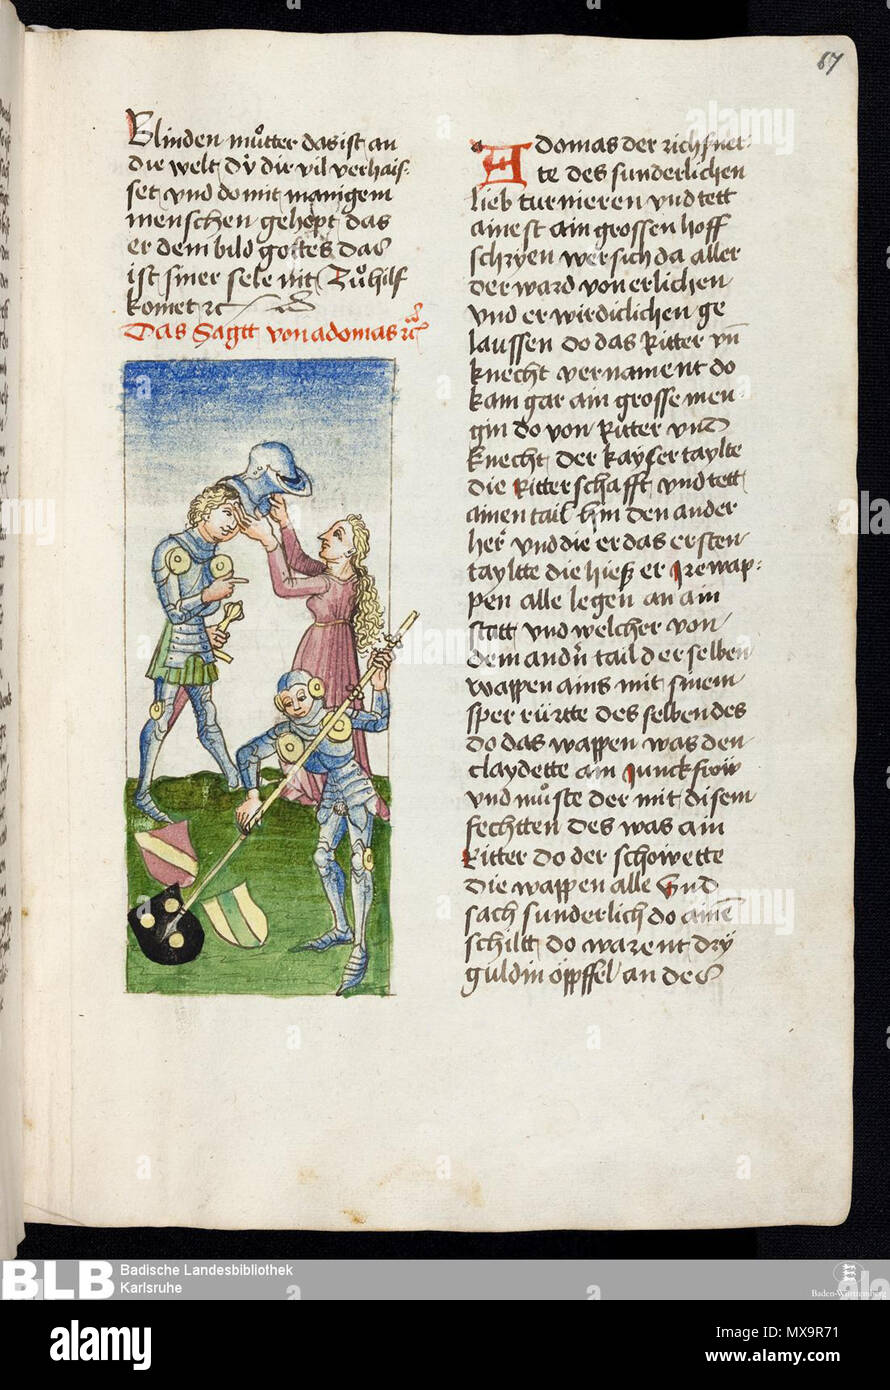 67
Blinden můtter das ist an
die welt Dÿ dir vil verhais-
set vnd do mit manigem
menschen gehept das
er dem bild gottes das
ist siner sele nit Zů hilf
komet rc
Das Sagtt von adomas rc
Adomas der richsnet-
te des sunderlichen
lieb turnieren vnd tett
ainest ain grossen hoff
schryen wer sich da aller
der ward von erlichen
vnd er wirdiclichen ge
laussen do das Ritter vn̄
knecht vernament do
kam gar ain grosse men-
gin do von Ritter vnd
knecht der kayser taylte
die Ritterschafft vnd tett
ainen tail hin den ander
her vnd die er das ersten
tayltte die hieß er Jre wap-
pen alle legen an ain
statt vnd welcher von
dem andn̄ tail der selben
wappen ains mit sinem
sper rürtte des selben des
do das wappen was den
claydette ain Junckfröw
vnd můste der mit disem
fechtten des was ain
Ritter do der schowette
die wappen alle Vnd
sach sunderlich do ainē
schiltt do warent dry
guldin öpffel an des
BLB Badische Landesbibliothek
Karlsruhe
Baden-Württemberg
alamy
Image ID: MX9R71
www.alamy.com